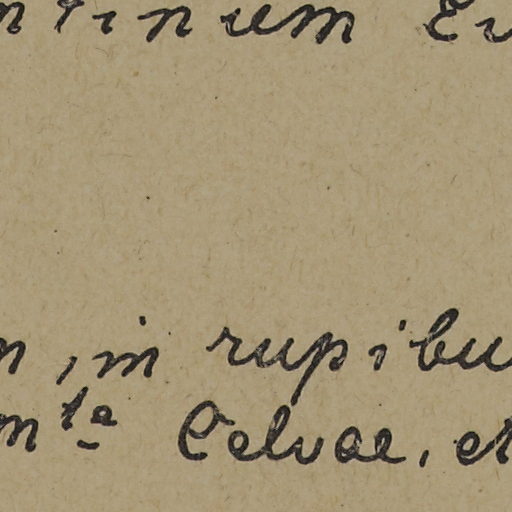 ntinum Eu
n, in rupibu
mta Celvae, et